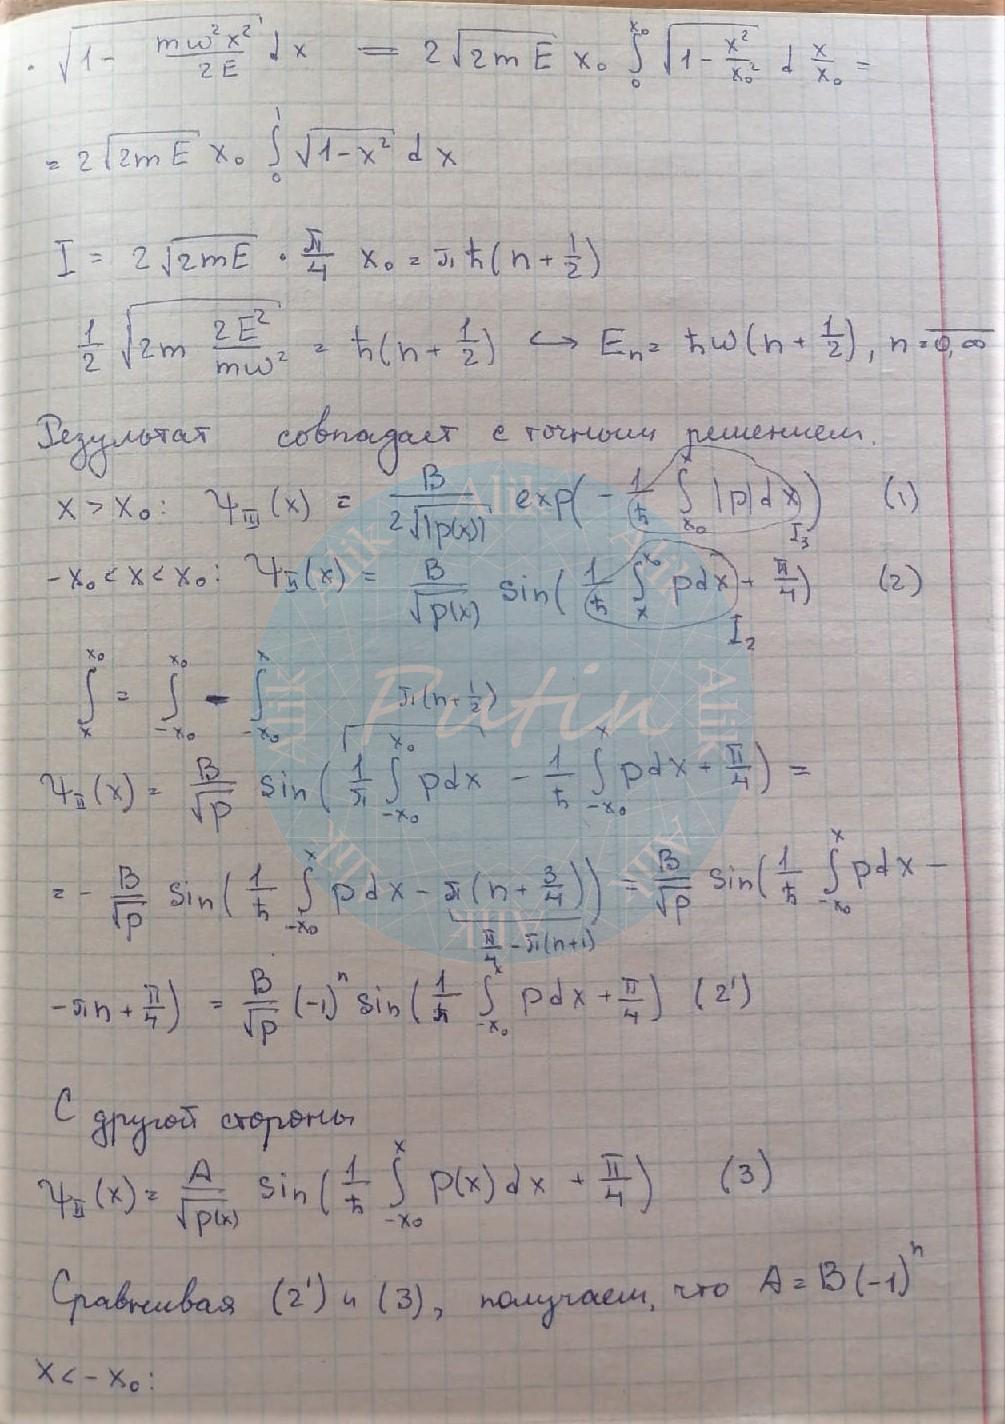 · √(1 - mω²x²/2E) dx = 2√(2mE) x₀ ∫₀^{x₀} √(1 - x²/x₀²) d x/x₀ =
= 2√(2mE) x₀ ∫₀¹ √(1-x²) dx
I = 2√(2mE) · π/4 x₀ = πħ(n + 1/2)
1/2 √(2m 2E²/mω²) = ħ(n + 1/2) ↔ Eₙ = ħω(n + 1/2), n = \overline{0,∞}
Результат совпадает с точным решением.
x > x₀: Ψ_III(x) = B/(2√|p(x)|) exp(- 1/ħ ∫_{x₀}^{x} |p|dx) (1)
I₃
-x₀ < x < x₀: Ψ_II(x) = B/√p(x) sin(1/ħ ∫_{x}^{x₀} pdx + π/4) (2)
I₂
∫_{x}^{x₀} = ∫_{-x₀}^{x₀} - ∫_{-x₀}^{x}
π(n + 1/2)
Ψ_II(x) = B/√p sin(1/ħ ∫_{-x₀}^{x₀} pdx - 1/ħ ∫_{-x₀}^{x} pdx + π/4) =
= - B/√p sin(1/ħ ∫_{-x₀}^{x} pdx - π(n + 3/4)) = B/√p sin(1/ħ ∫_{-x₀}^{x} pdx -
π/4 - π(n+1)
- πn + π/4) = B/√p (-1)ⁿ sin(1/ħ ∫_{-x₀}^{x} pdx + π/4) (2')
С другой стороны
Ψ_II(x) = A/√p(x) sin(1/ħ ∫_{-x₀}^{x} p(x)dx + π/4) (3)
Сравнивая (2') и (3), получаем, что A = B(-1)ⁿ
x < -x₀:
Putin
Alik
Alik
Alik
Alik
Alik
Alik
Alik
Alik